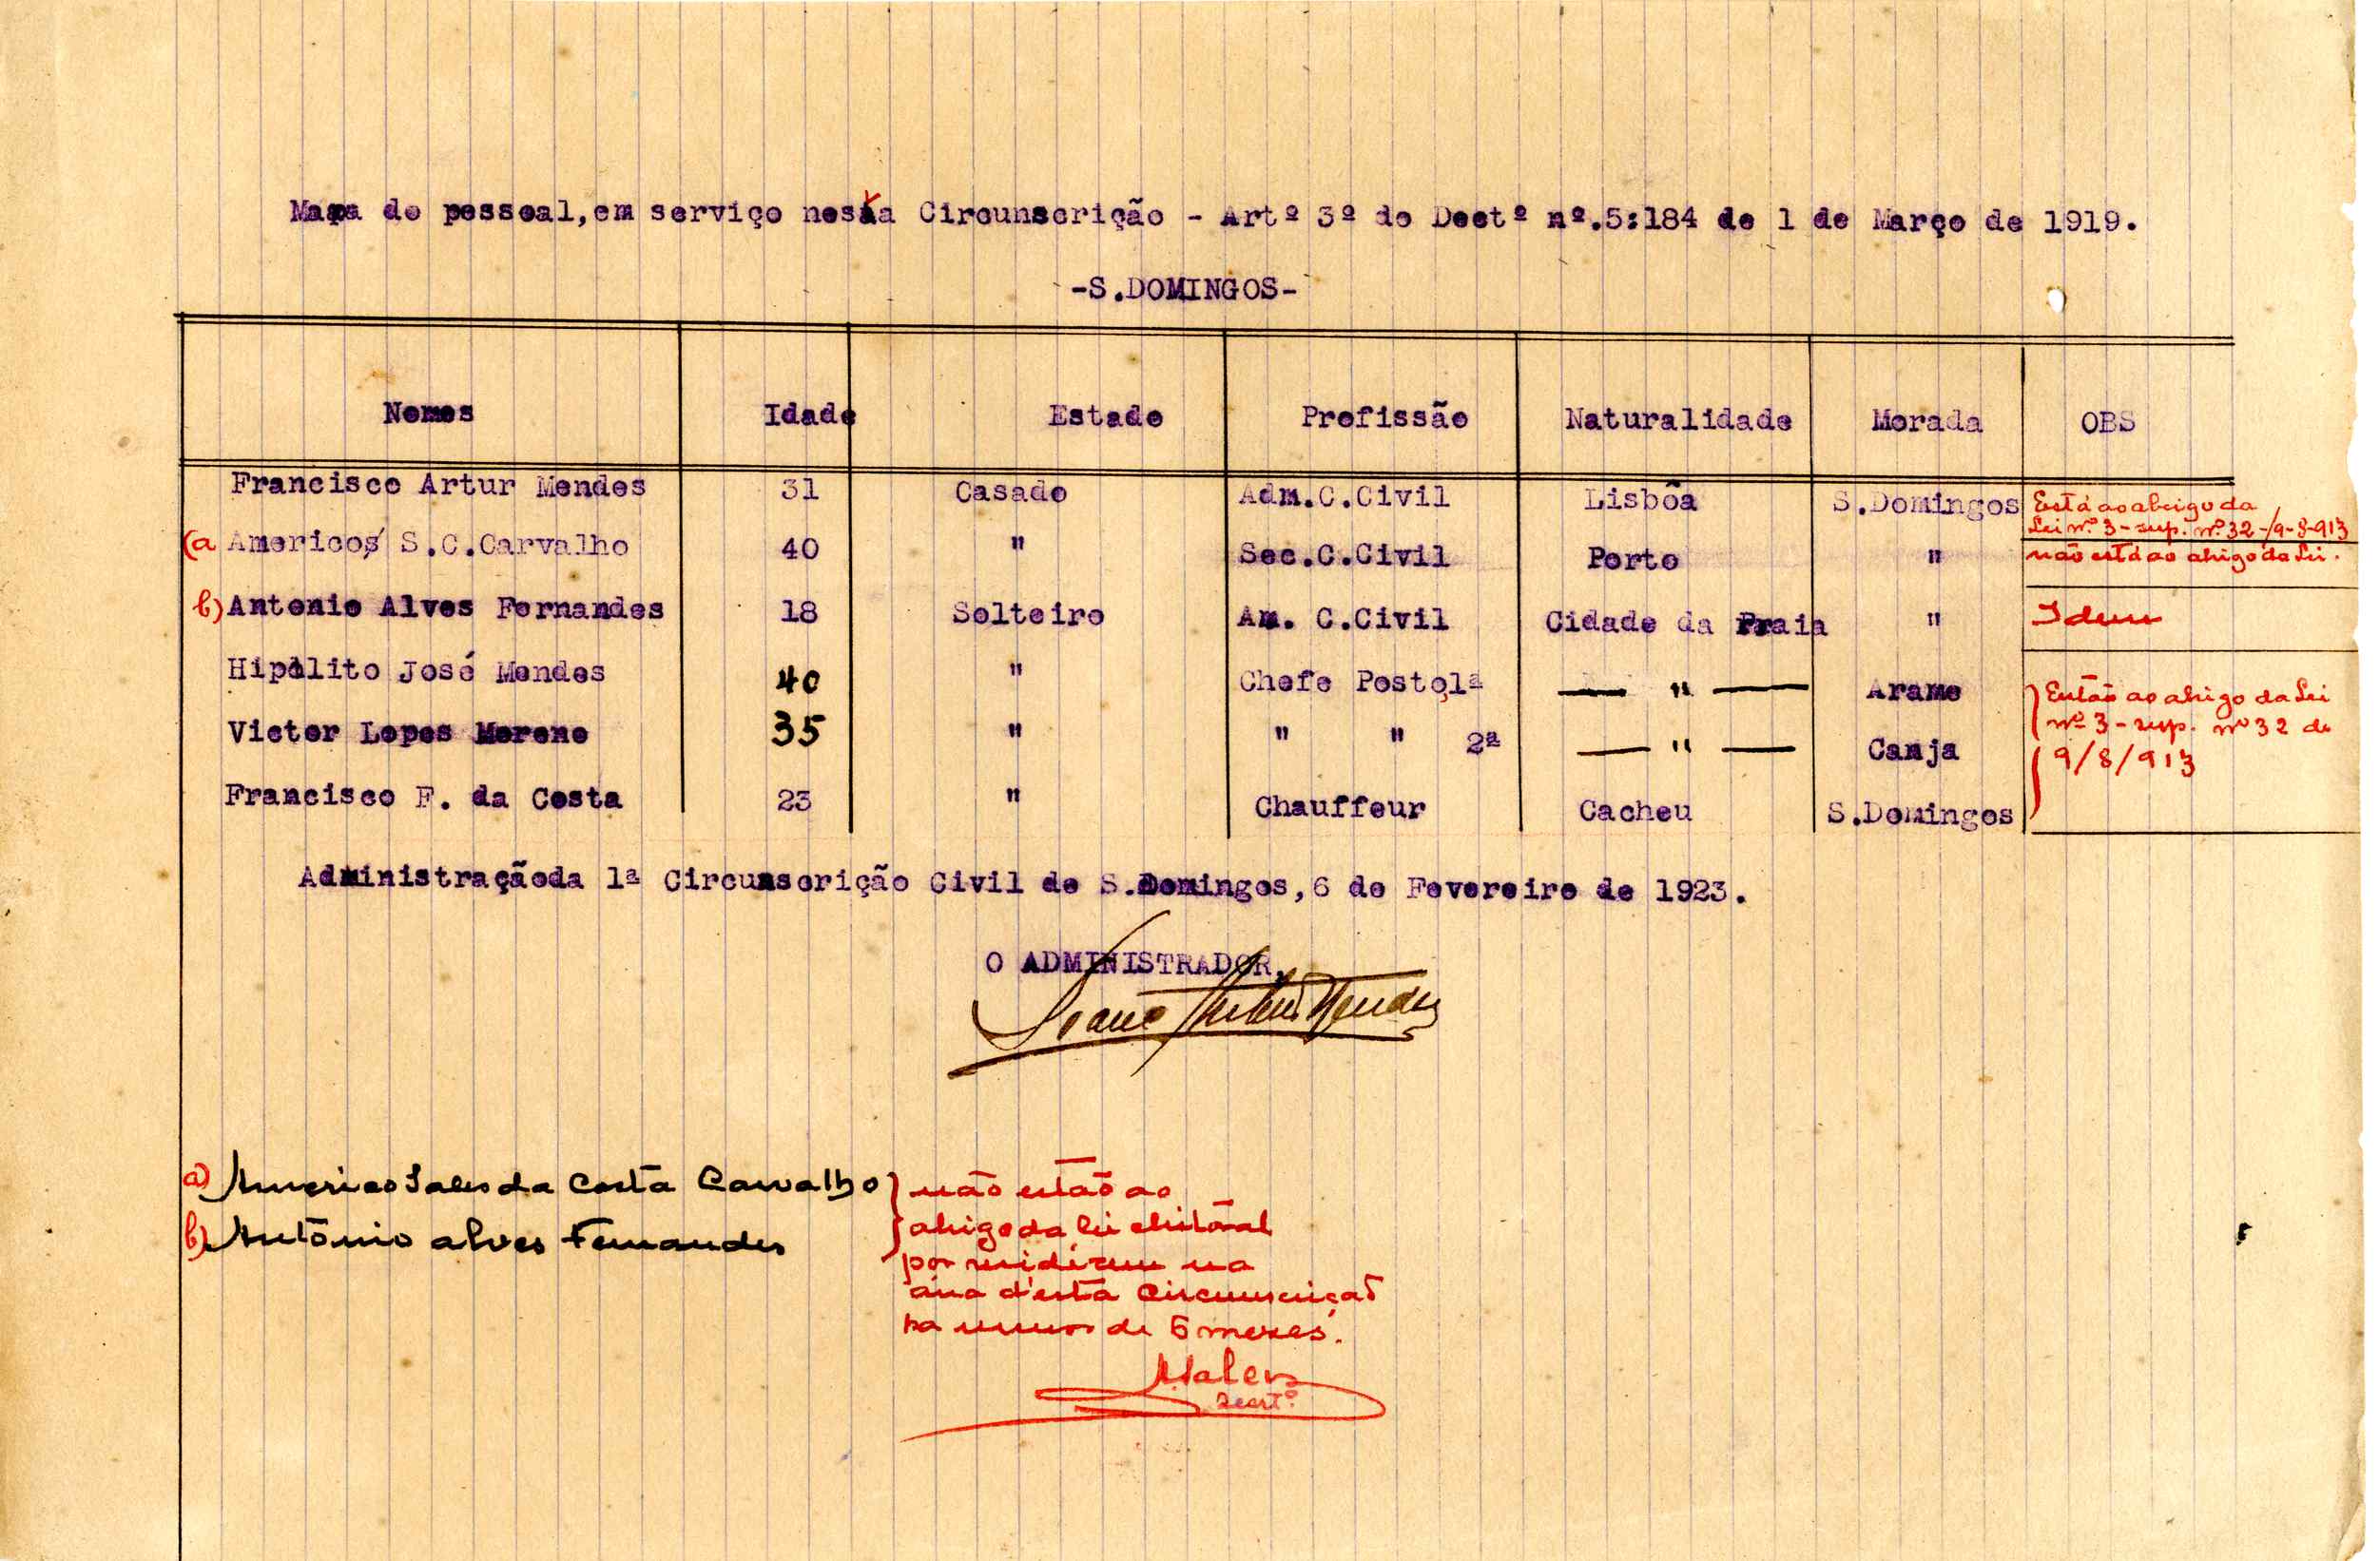 Mapa do pessoal, em serviço nesta Circunscrição - Artº 3º do Dectº nº.5:184 de 1 de Março de 1919.
-S.DOMINGOS-
Nomes Idade Estado Profissão Naturalidade Morada OBS
Francisco Artur Mendes 31 Casado Adm.C.Civil Lisbôa S.Domingos Está ao abrigo da
Lei nº 3 - sup. nº 32 - 9-8-913
(a Americo S.C.Carvalho 40 " Sec.C.Civil Porto " não está ao abrigo da Lei.
b) Antonio Alves Fernandes 18 Solteiro Am. C.Civil Cidade da Praia " Idem
Hipólito José Mendes 40 " Chefe Posto, 1ª — " — Arame Estão ao abrigo da Lei
nº 3 - sup. nº 32 de
Victor Lopes Moreno 35 " " " 2ª — " — Canja 9/8/913
Francisco F. da Costa 23 " Chauffeur Cacheu S.Domingos
Administraçãoda 1ª Circunscrição Civil de S.Domingos, 6 de Fevereiro de 1923.
O ADMINISTRADOR,
a) Americo Sales da Costa Carvalho não estão ao
abrigo da lei eleitoral
b) António alves Fernandes
por residirem na
área d'esta Circunscrição
ha menos de 6 meses.